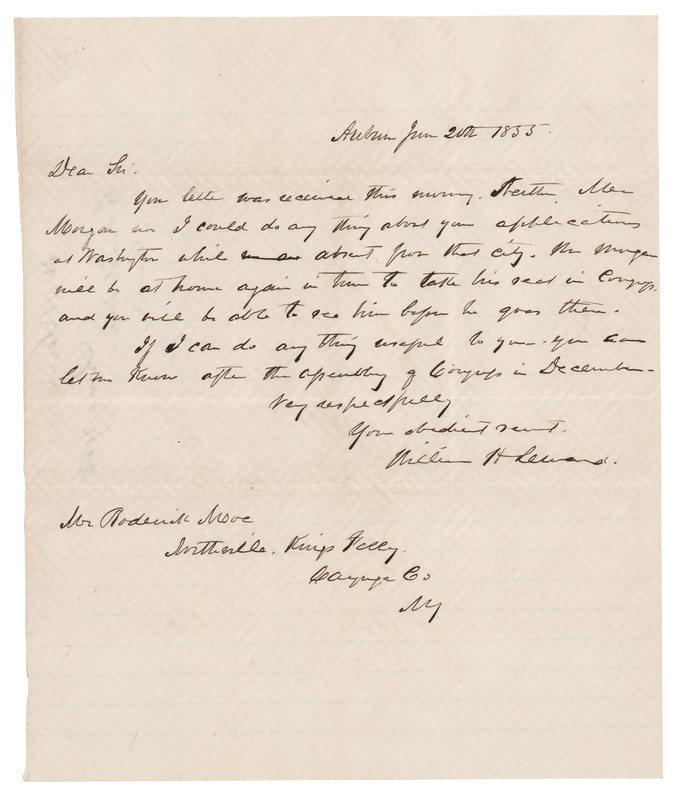 Auburn June 20th 1855.
Dear Sir.
Your letter was received this morning. Neither Mr
Morgan nor I could do any thing about your applications
at Washington while absent from that city. Mr Morgan
will be at home again in time to take his seat in Congress.
and you will be able to see him before he goes there.
If I can do any thing useful to you you can
let me know after the assembling of Congress in December
Very respectfully
Your obedient servt.
William H Seward.
Mr Roderick
Northville. Kings Ferry.
Cayuga Co
NY